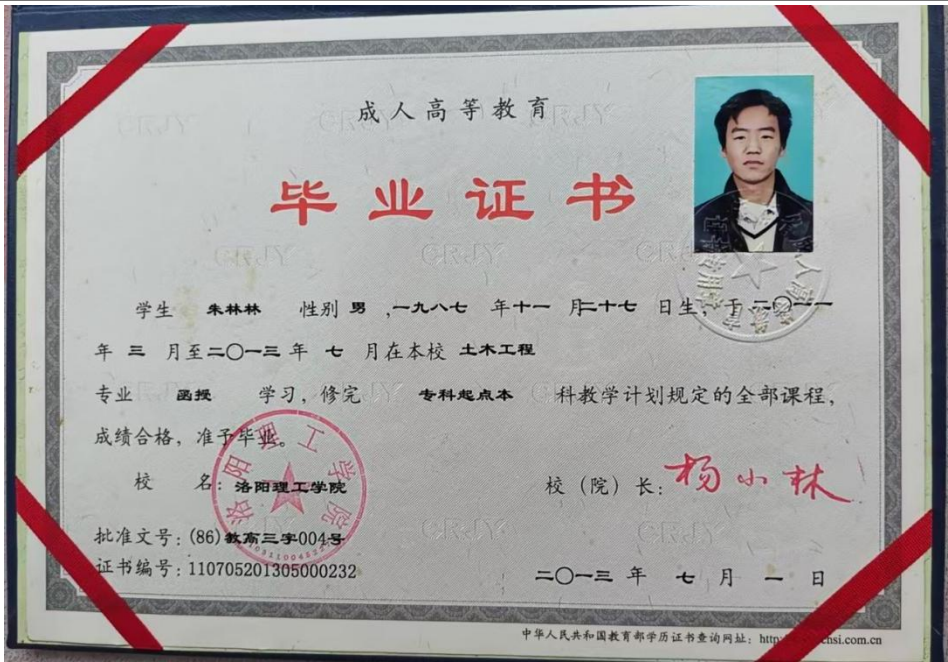 成人高等教育
毕业证书
学生 朱林林 性别 男 ,一九八七 年十一 月二十七 日生, 于 二〇一一
年 三 月至二〇一三年 七 月在本校 土木工程
专业 函授 学习, 修完 专科起点本 科教学计划规定的全部课程,
成绩合格, 准予毕业。
校 名: 洛阳理工学院
校（院）长: 杨小林
批准文号: (86)教高三字004号
证书编号: 110705201305000232
二〇一三 年 七 月 一 日
中华人民共和国教育部学历证书查询网址: http://
chsi.com.cn
洛阳理工学院
CRJY CRJY CRJY
CRJY CRJY CRJY
CRJY CRJY